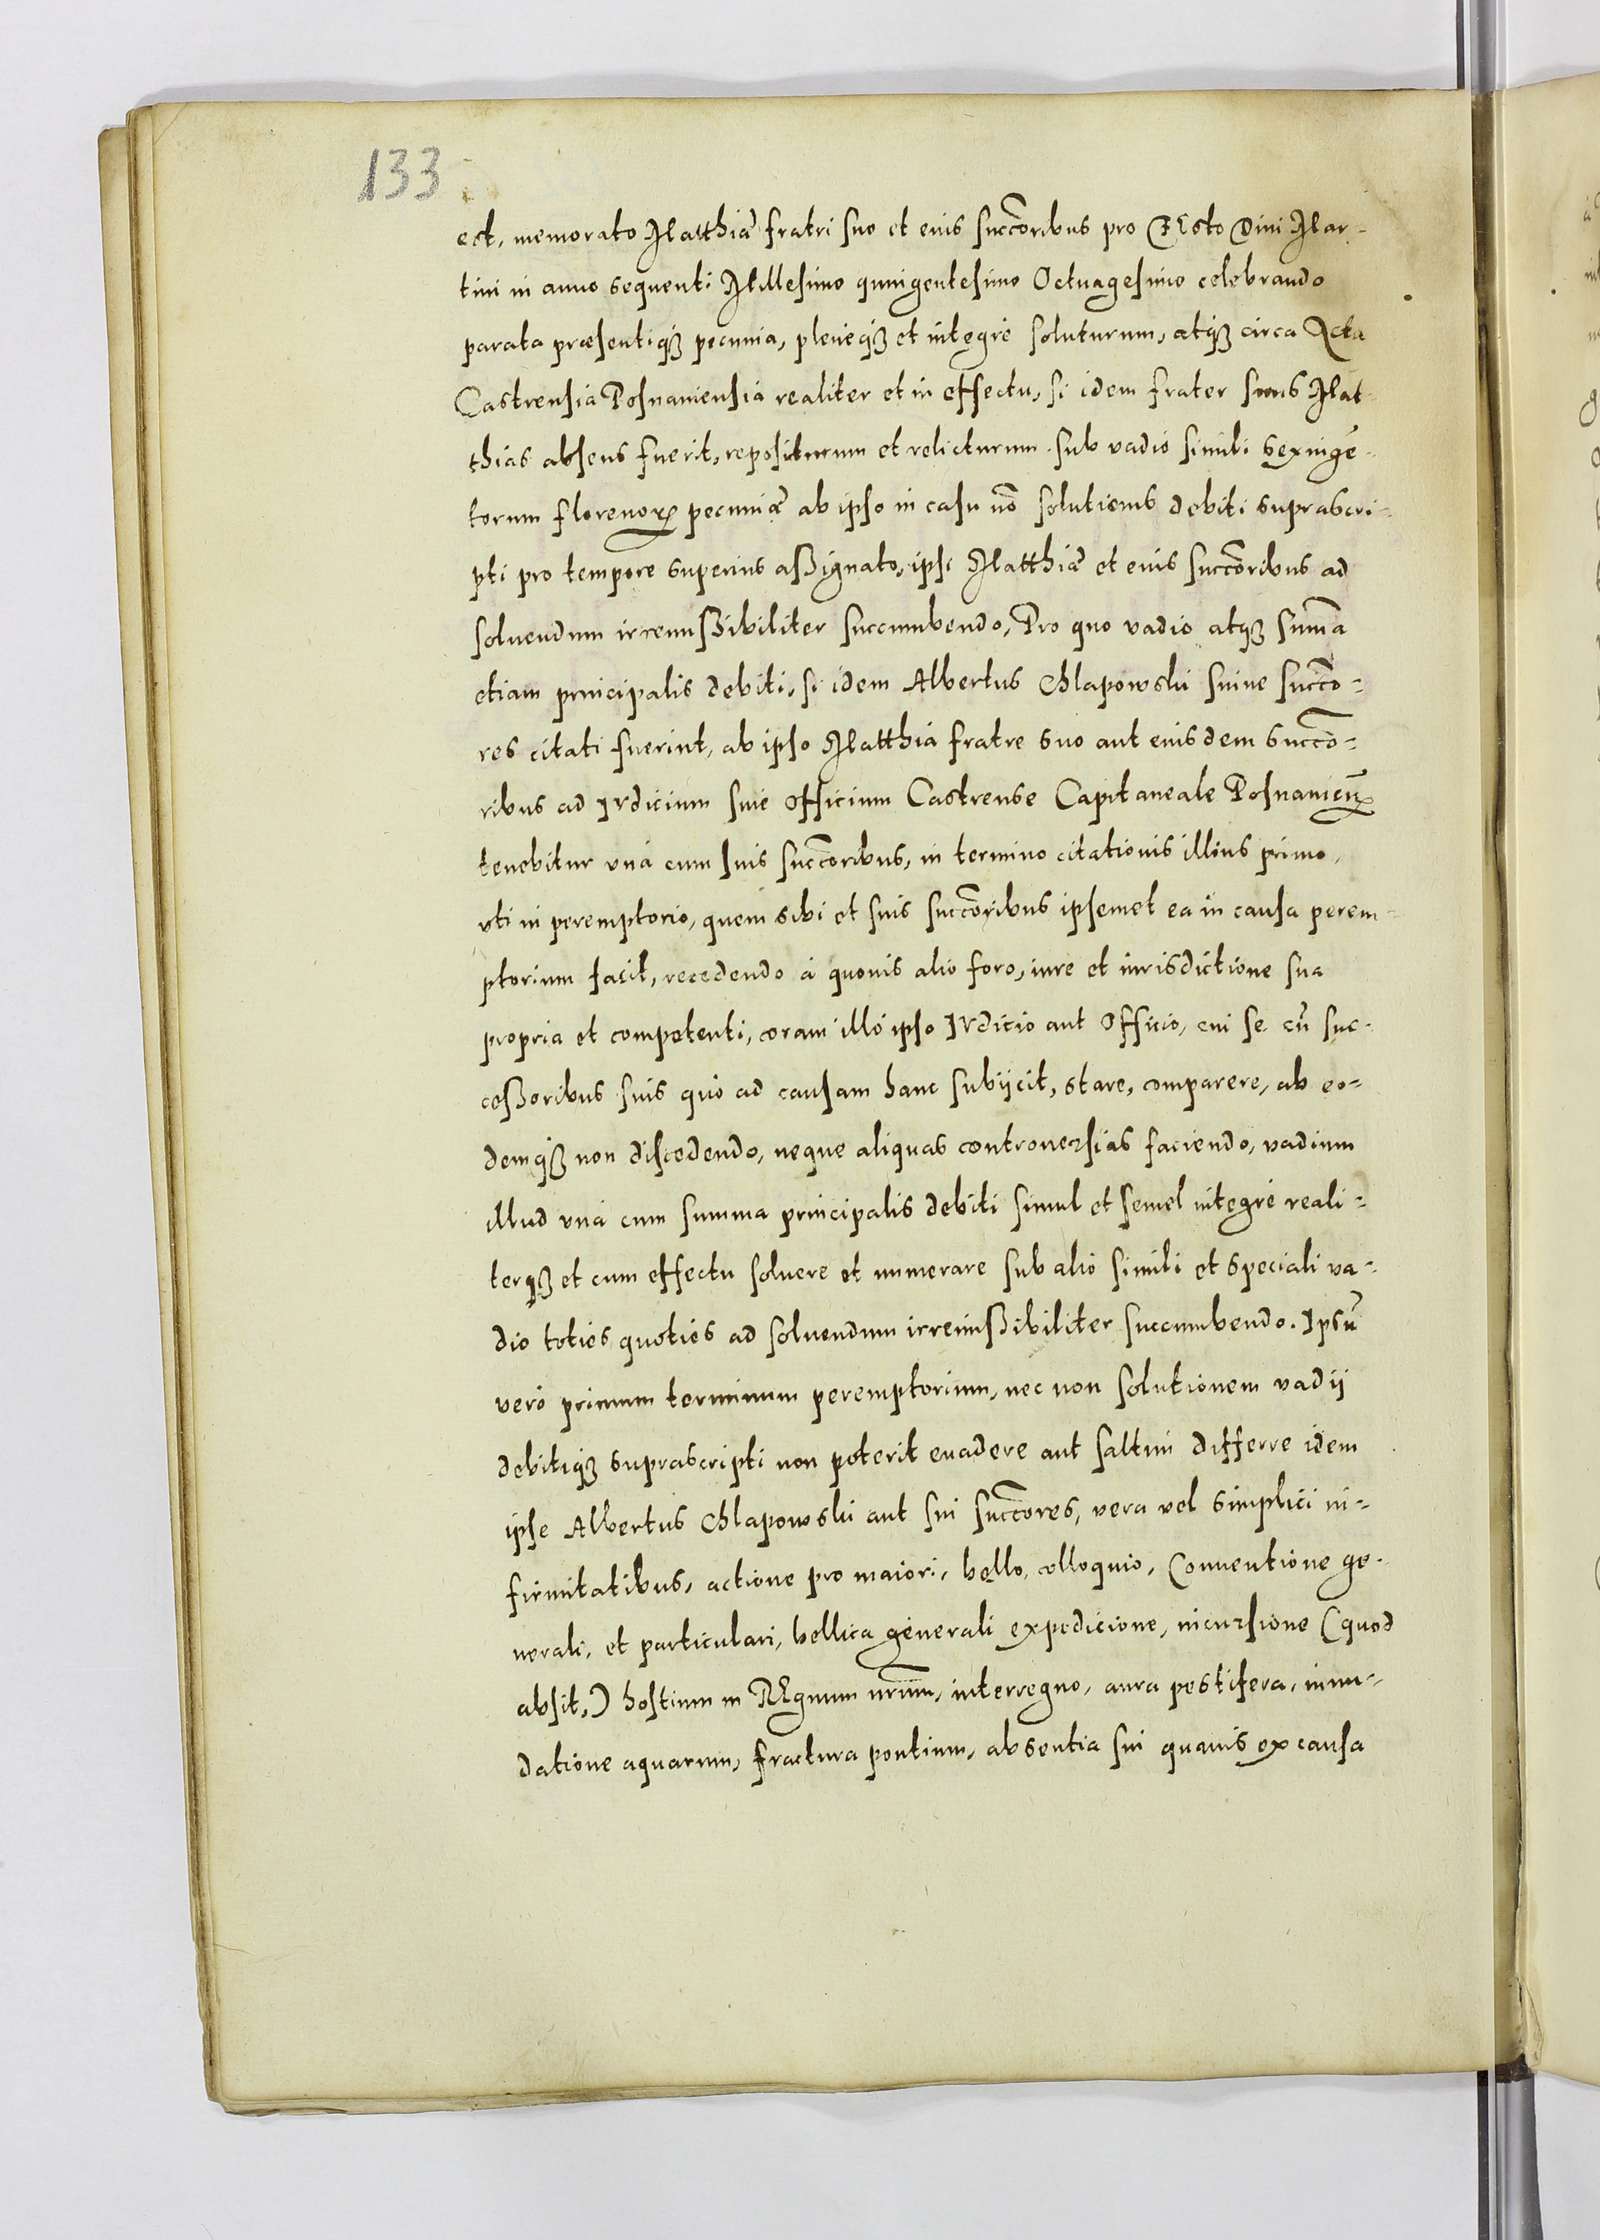 133
est, memorato Matthiæ fratri suo et eius succōribus pro FEsto Diui Mar-
tini in anno sequenti Millesimo quingentesimo Octuagesimo celebrando
parata præsentiq3 pecunia, pleneq3 et integrè soluturum, atq3 circa Acta
Castrensia Posnaniensia realiter et in effectu, si idem frater suus Mat-
thias absens fuerit, repositurum et relicturum sub vadio simili sexingē-
torum florenorꝝ pecuniæ ab ipso in casu nō solutionis debiti suprascri-
pti pro tempore superius aßignato, ipsi Matthiæ et eius succōribus ad
soluendum irremißibiliter succumbendo, Pro quo vadio atq3 sum̄a
etiam principalis debiti, si idem Albertus Chlapowski suiue succō-
res citati fuerint, ab ipso Matthia fratre suo aut eiusdem succō-
ribus ad Iudicium siue officium Castrense Capitaneale Posnanien̄
tenebitur vnà cum suis succōribus, in termino citationis illius primo,
vti in peremptorio, quem sibi et suis succōribus ipsemet ea in causa perem-
ptorium facit, recedendo à quouis alio foro, iure et iurisdictione sua
propria et competenti, coram illo ipso Iudicio aut Officio, cui se cū suc-
ceßoribus suis quo ad causam hanc subijcit, stare, comparere, ab eo-
demq3 non discedendo, neque aliquas controuersias faciendo, vadium
illud vnà cum summa principalis debiti simul et semel integrè reali-
terq3 et cum effectu soluere et numerare sub alio simili et speciali va-
dio toties quoties ad soluendum irremißibiliter succumbendo. Ipsū
verò primum terminum peremptorium, nec non solutionem vadij
debitiq3 suprascripti non poterit euadere aut saltim differre idem
ipse Albertus Chlapowski aut sui succōres, vera vel simplici in-
firmitatibus, actione pro maiori, bello, colloquio, Conuentione ge-
nerali, et particulari, bellica generali expedicione, incursione (quod
absit,) hostium in REgnum nr̄um, interregno, aura pestifera, innu-
datione aquarum, fractura pontium, absentia sui quauis ex causa